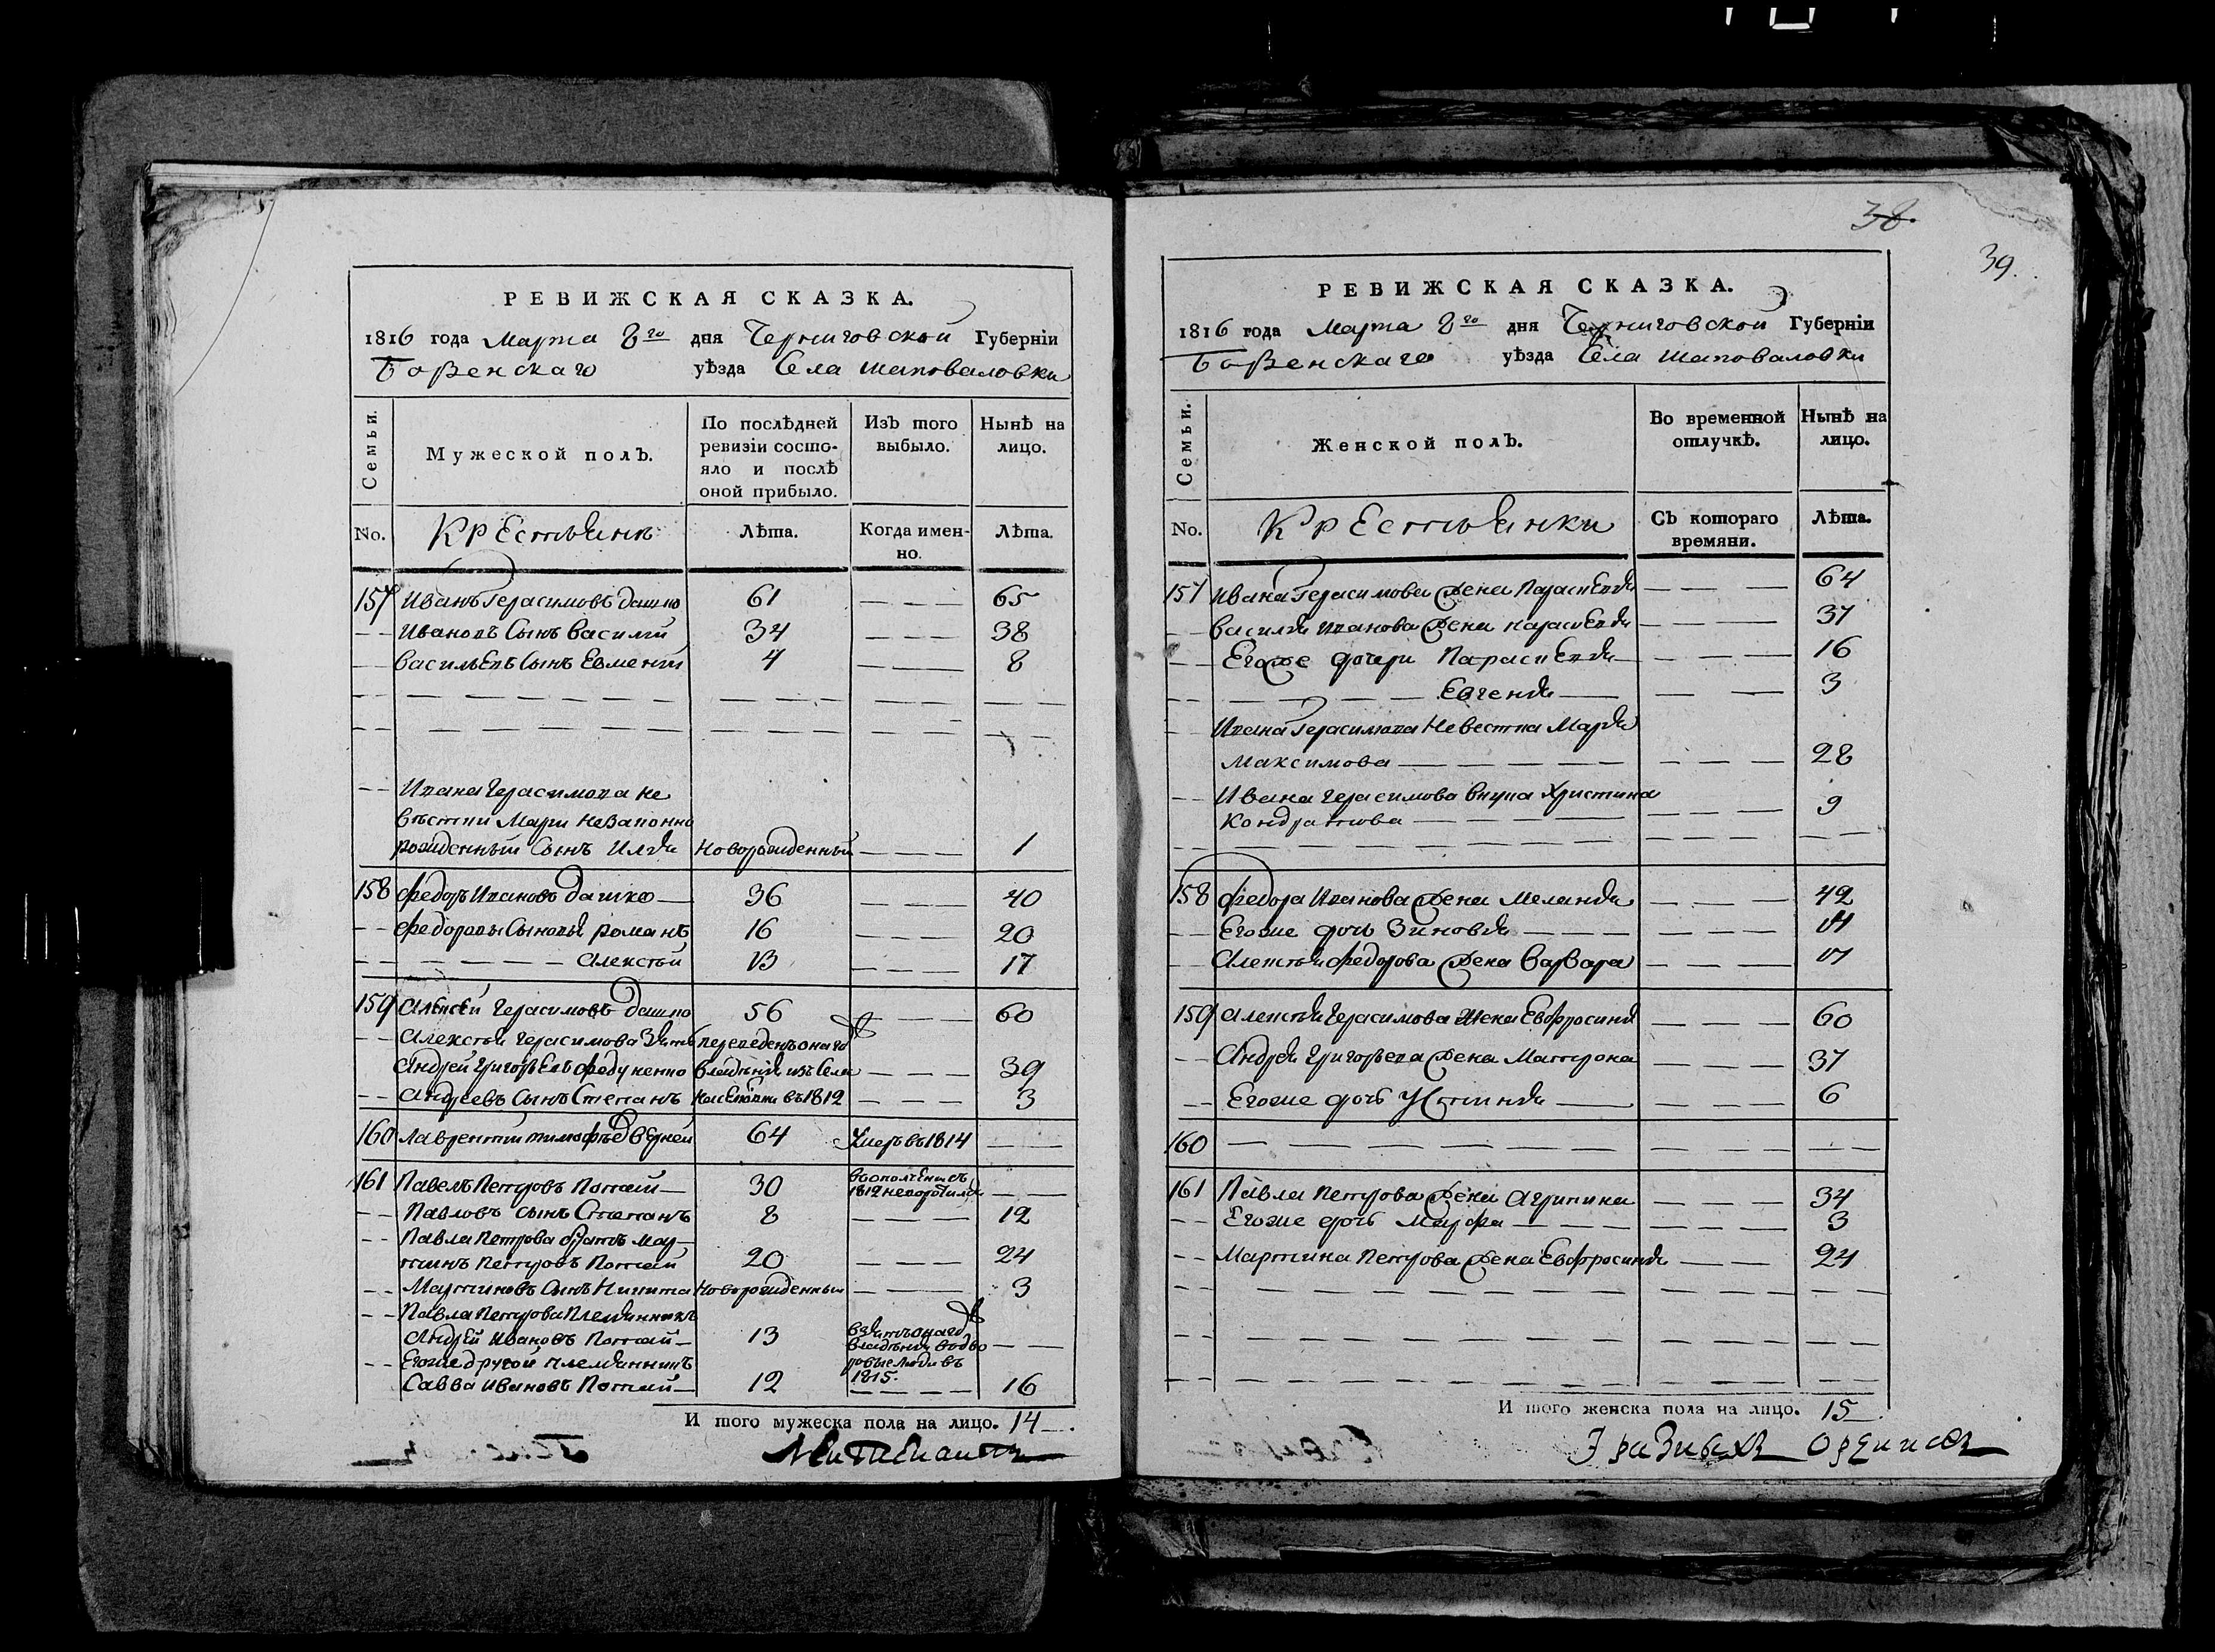 РЕВИЖСКАЯ СКАЗКА.
1816 года Марта 8го дня Черниговской Губерніи
Борзенскаго уѣзда Села Шаповаловки
Семьи.
Мужеской полъ.
По послѣдней ревизіи состо-
яло и послѣ
оной прибыло.
Изъ того
выбыло.
Нынѣ на
лицо.
No.
Крестьянъ
Лѣта.
Когда имен-
но.
Лѣта.
157 Иванъ Герасимовъ Дашко 61 — — — 65
— — Ивановъ Сынъ Василій 34 — — — 38
— — Васильевъ Сынъ Евменій 4 — — — 8
— — Ивана Герасимова не
вѣстки Мари незаконно
рожденный Сынъ Илья Новорожденный — — — 1
158 Федоръ Ивановъ Дашко — 36 — — — 40
— — Федоровы Сыновья Романъ 16 — — — 20
— — — — — — Алексѣй 13 — — — 17
159 Алексѣй Герасимовъ Дашко 56 — — — 60
— — Алексѣя Герасимова Зять переведенъ онаго
Андрей Григорьевъ Федченко владѣнія изъ Села — — — 39
— — Андреевъ Сынъ Степанъ въ 1812 — — — 3
160 Лаврентій 64 Умеръ въ 1814 — —
161 Павелъ Петровъ Потай — 30 въ ополченіи съ
1812 — —
— — Павловъ сынъ Степанъ 8 — — — 12
— — Павла Петрова братъ Мар—
тинъ Петровъ Потай 20 — — — 24
— — Мартиновъ Сынъ Никита Новорожденный — — — 3
— — Павла Петрова Племянникъ
Андрей Ивановъ Потай — 13 взятъ онаго
владѣнія в дво — —
— — Егоже другой племянникъ ровые люди въ
Савва Ивановъ Потай — 12 1815. — — — 16
И того мужеска пола на лицо. 14 —.
38.
39.
РЕВИЖСКАЯ СКАЗКА.
1816 года Марта 8го дня Черниговской Губерніи
Борзенскаго уѣзда Села Шаповаловки
Семьи.
Женской полъ.
Во временной
отлучкѣ.
Нынѣ на
лицо.
No.
Крестьянки
Съ котораго
времяни.
Лѣта.
157 Ивана Герасимова жена Параскевья — — — 64
— — Василья Иванова жена Параскевья — — — 37
— — Егоже дочери Параскевья — — — 16
— — — — — — Евгенья — — — 3
Ивана Герасимова Невестка Марья
Максимова — — — — — — — 28
— — Ивана Герасимова внука Христина
Кондратова — — — — — — 9
158 Федора Иванова жена Меланья — — — 42
— — Егоже дочь Зиновья — — — — — —
Алексѣя Федорова жена Варвара — — —
159 Алексѣя Герасимова Жена Евфросинья — — — 60
— — Андрея Григорьева жена Матрона — — — 37
— — Егоже дочь Устинья — — — — 6
160 — — — — — —
161 Павла Петрова жена Агрипина — — — 34
— — Егоже дочь Марфа — — — — — — 3
— — Мартина Петрова жена Евфросинья — — — 24
И того женска пола на лицо. 15 —.